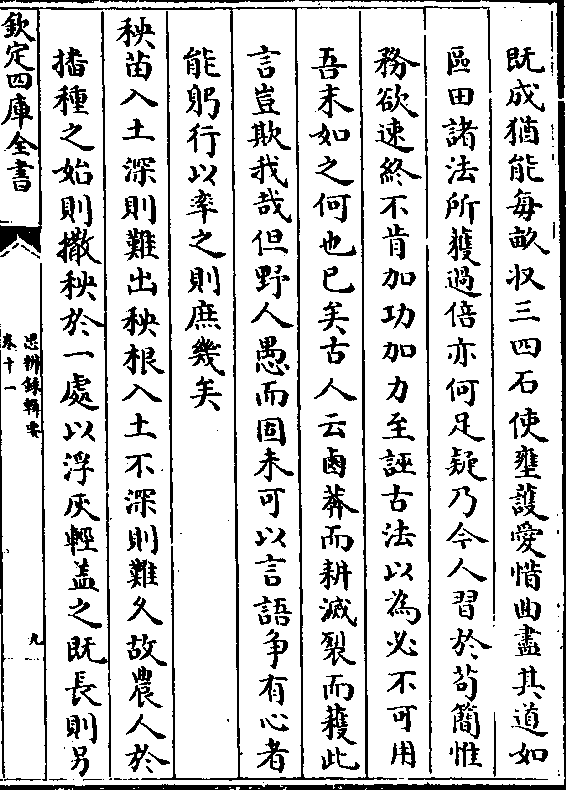 既成猶能每畝収三四石使壅護愛惜曲盡其道如
區田諸法所獲過倍亦何足疑乃今人習於茍簡惟
務欲速終不肯加功加力至誣古法以為必不可用
吾末如之何也已矣古人云鹵莽而耕滅裂而穫此
言豈欺我哉但野人愚而固未可以言語争有心者
能躬行以率之則庶幾矣
秧苗入土深則難出秧根入土不深則難久故農人於
播種之始則撒秧於一處以浮灰輕盖之既長則另
欽定四庫全書
思辨錄輯要
卷十一
九